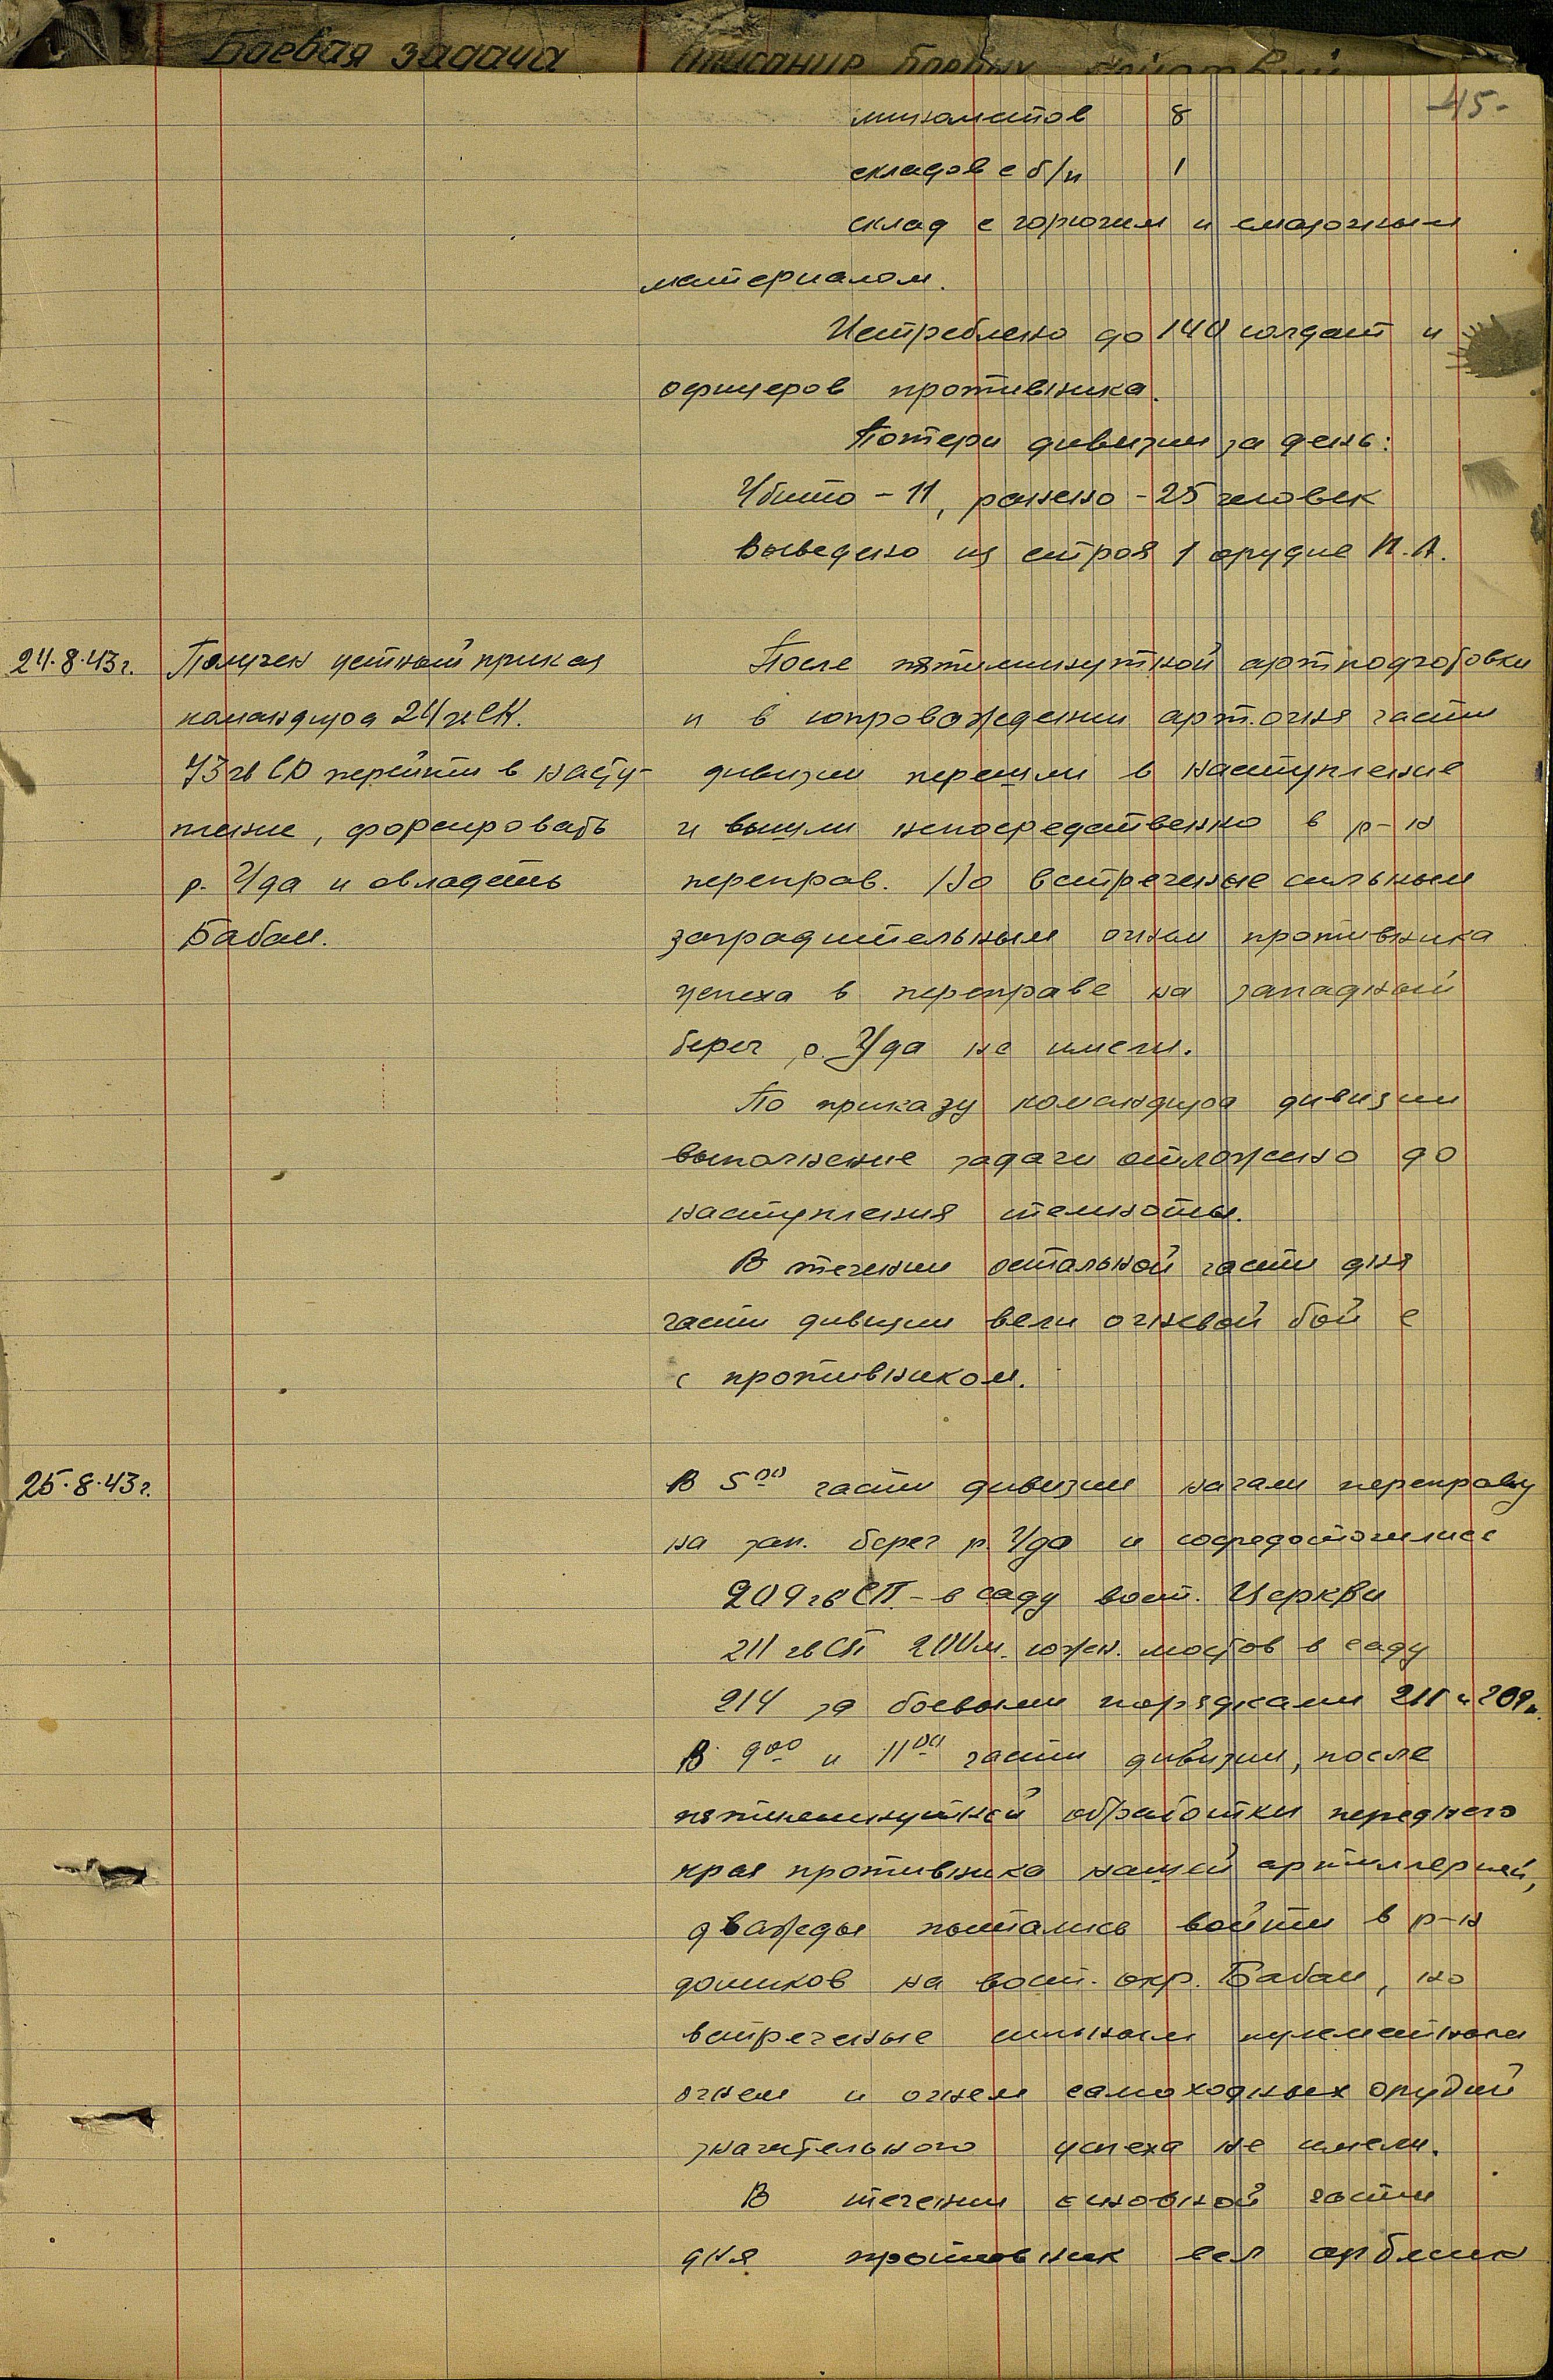 Боевая задача Описание боевых действий
-45-
минометов 8
складов с б/п 1
склад с горючим и смазочным
материалом.
Истреблено до 140 солдат и
офицеров противника.
Потери дивизии за день:
Убито - 11, ранено - 25 человек
Выведено из строя 1 орудие П.А.
24.8.43г.
Получен устный приказ
командира 24 гв СК.
73 гв СД перейти в насту-
пление, форсировать
р. Уда и овладеть
Бабаи.
После пятиминутной артподготовки
и в сопровождении арт.огня части
дивизии перешли в наступление
и вышли непосредственно в р-н
переправ. Но встреченные сильным
заградительным огнем противника
успеха в переправе на западный
берег р. Уда не имели.
По приказу командира дивизии
выполнение задачи отложено до
наступления темноты.
В течении остальной части дня
части дивизии вели огневой бой с
с противником.
25.8.43г.
В 5 00 части дивизии начали переправу
на зап. берег р. Уда и сосредоточились
209 гв СП - в саду вост. Церкви
211 гв СП 200 м. южн. мостов в саду
214 за боевыми порядками 211 и 209 п.
В 9 00 и 11 00 части дивизии, после
пятиминутной обработки переднего
края противника нашей артиллерией,
дважды пытались войти в р-н
домиков на вост. окр. Бабаи, но
встреченные сильным пулеметным
огнем и огнем самоходных орудий
значительного успеха не имели.
В течении основной части
дня противник вел